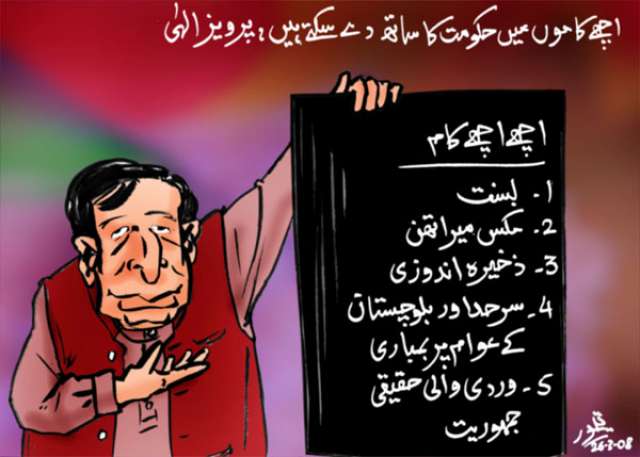 اچھے کاموں میں حکومت کا ساتھ دے سکتے ہیں، پرویز الٰہی
اچھے اچھے کام
1- بسنت
2- مکس میراتھن
3- ذخیرہ اندوزی
4- سرحد اور بلوچستان
کے عوام پر بمباری
5- وردی والی حقیقی
جمہوریت
26-3-08